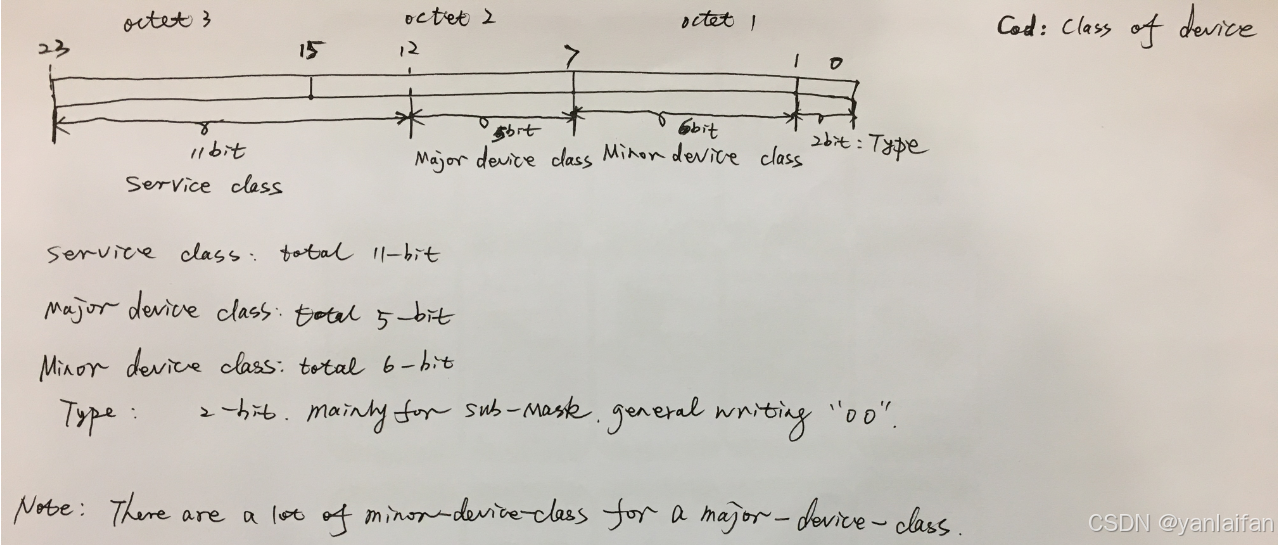 octet 3 octet 2 octet 1 Cod: Class of device
23 15 12 7 1 0
11bit 5bit 6bit 2bit: Type
Service class Major device class Minor device class
Service class: total 11-bit
Major device class: total 5-bit
Minor device class: total 6-bit
Type: 2-bit. mainly for sub-mask. general writing "00".
Note: There are a lot of minor-device-class for a major-device-class.
CSDN @yanlaifan